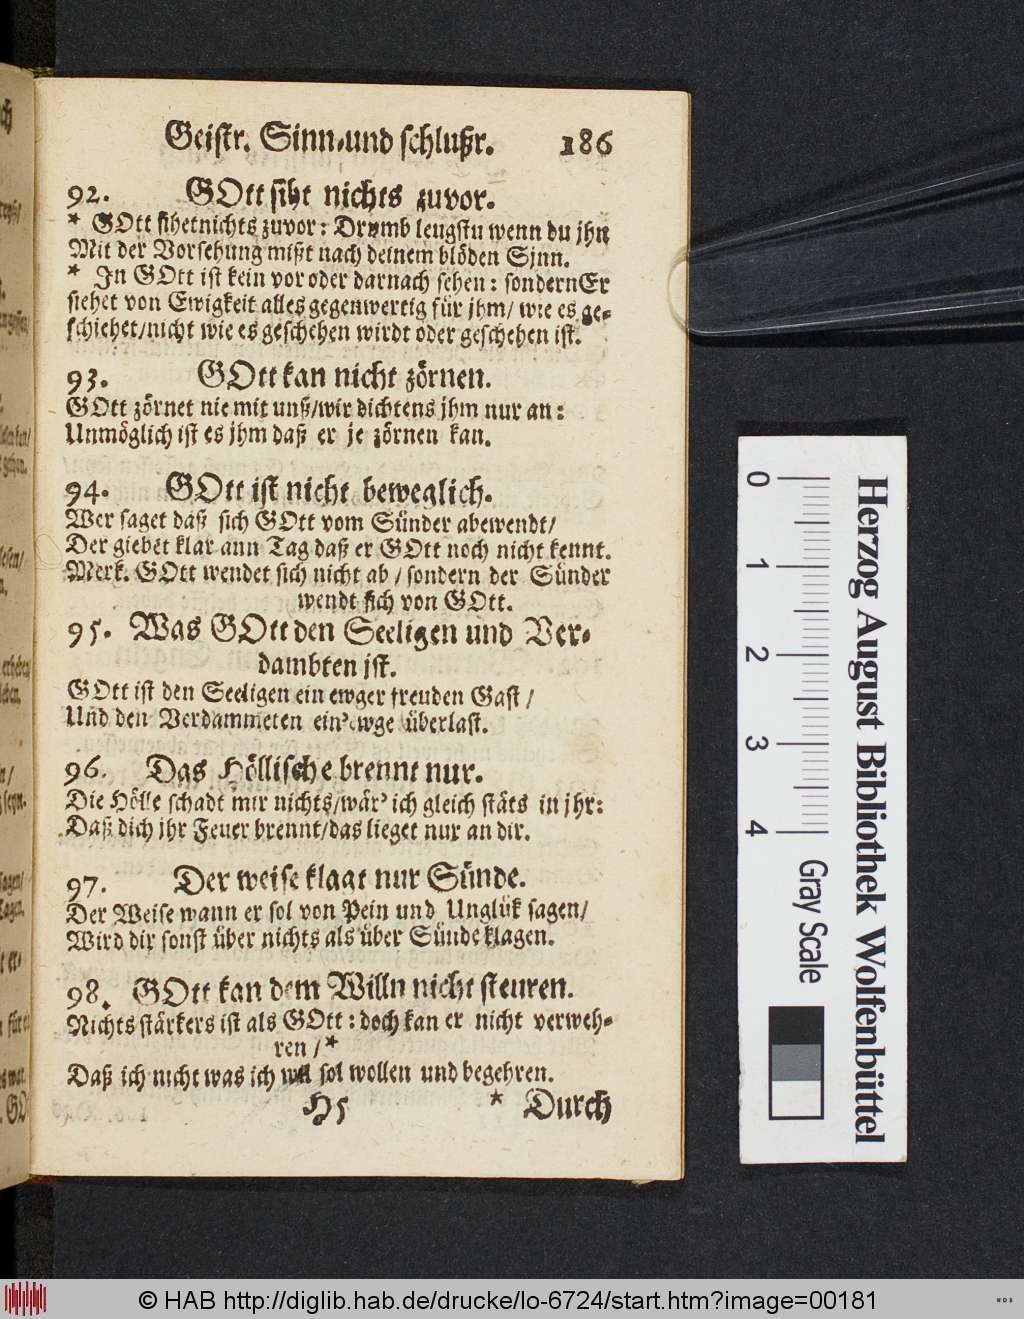 Geistr. Sinn-und schlußr. 186
92. GOtt siht nichts zuvor.
* GOtt sihet nichts zuvor: Drumb leugstu wenn du jhn
Mit der Vorsehung mißt nach deinem blöden Sinn.
* In GOtt ist kein vor oder darnach sehen: sondern Er
siehet von Ewigkeit alles gegenwertig für jhm/ wie es ge-
schiehet/nicht wie es geschehen wirdt oder geschehen ist.
93. GOtt kan nicht zörnen.
GOtt zörnet nie mit unß/wir dichtens jhm nur an:
Unmöglich ist es jhm daß er je zörnen kan.
94. GOtt ist nicht beweglich.
Wer saget daß sich GOtt vom Sünder abewendt/
Der giebet klar ann Tag daß er GOtt noch nicht kennt.
Merk. GOtt wendet sich nicht ab / sondern der Sünder
wendt sich von GOtt.
95. Was GOtt den Seeligen und Ver-
dambten jst.
GOtt ist den Seeligen ein ewger freuden Gast /
Und den Verdammeten ein' ewge überlast.
96. Das Höllische brennt nur.
Die Hölle schadt mir nichts/wär' ich gleich stäts in jhr:
Daß dich jhr Feuer brennt/das lieget nur an dir.
97. Der weise klagt nur Sünde.
Der Weise wann er sol von Pein und Unglük sagen/
Wird dir sonst über nichts als über Sünde klagen.
98. GOtt kan dem Willn nicht steuren.
Nichts stärkers ist als GOtt: doch kan er nicht verweh-
ren /*
Daß ich nicht was ich will sol wollen und begehren.
H5 * Durch
Herzog August Bibliothek Wolfenbüttel
0 1 2 3 4 Gray Scale
© HAB http://diglib.hab.de/drucke/lo-6724/start.htm?image=00181